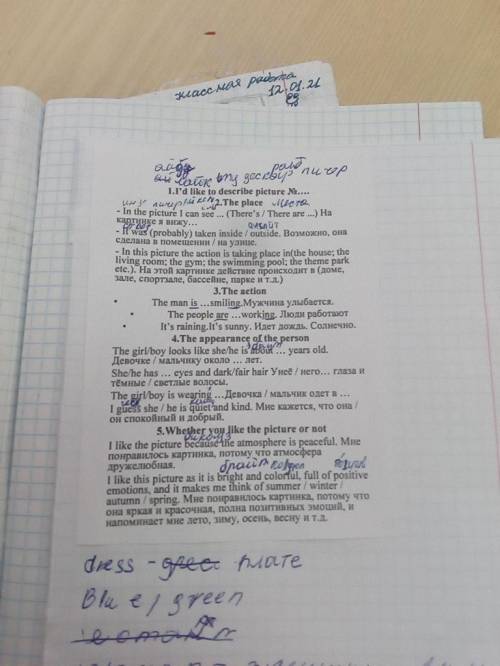 классная работа
12.01.21
ай лайк ту дескрайб пичер
1.I'd like to describe picture №….
2.The place места
- In the picture I can see ... (There's / There are ...) На
картинке я вижу…
- It was (probably) taken inside / outside. Возможно, она
сделана в помещении / на улице.
- In this picture the action is taking place in(the house; the
living room; the gym; the swimming pool; the theme park
etc.). На этой картинке действие происходит в (доме,
зале, спортзале, бассейне, парке и т.д.)
3.The action
• The man is …smiling.Мужчина улыбается.
• The people are …working. Люди работают
• It's raining.It's sunny. Идет дождь. Солнечно.
4.The appearance of the person
The girl/boy looks like she/he is about … years old.
Девочке / мальчику около … лет.
She/he has … eyes and dark/fair hair Унеё / него… глаза и
тёмные / светлые волосы.
The girl/boy is wearing …Девочка / мальчик одет в …
I guess she / he is quiet and kind. Мне кажется, что она /
он спокойный и добрый.
5.Whether you like the picture or not
бикоуз
I like the picture because the atmosphere is peaceful. Мне
понравилось картинка, потому что атмосфера
дружелюбная.
брайт
I like this picture as it is bright and colorful, full of positive
emotions, and it makes me think of summer / winter /
autumn / spring. Мне понравилось картинка, потому что
она яркая и красочная, полна позитивных эмоций, и
напоминает мне лето, зиму, осень, весну и т.д.
dress - плате
Blue / green